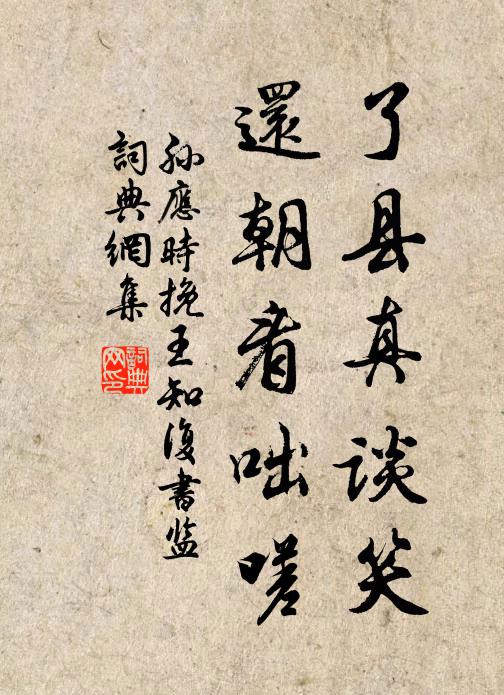 了县真谈笑
還朝看咄嗟
孙應時挽王知復書监
詞典網集
詞典
网印